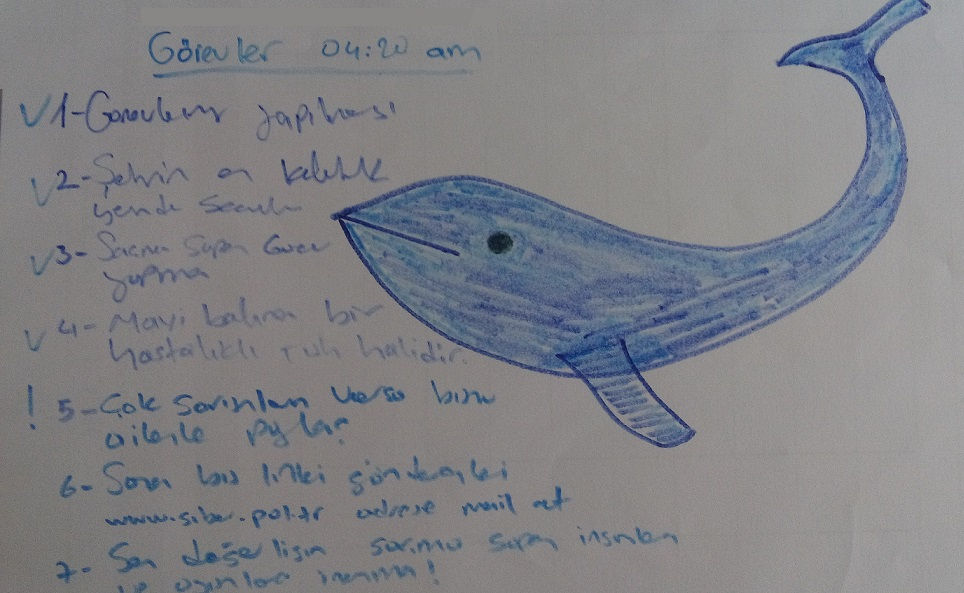 Görevler 04:20 am
1- Görevlerin yapılması
2- Şehrin en kalabalık
yerinde
3- Saçma sapan Görev
yapma
4- Mavi balina bir
hastalıklı ruh halidir.
! 5- Çok sorunları varsa bunu
ailenle paylaş
6- Sana bu linki gönderen
www.siber.pol.tr adrese mail at
7- Sen değerlisin sapan insanlara
ve oyunlara inanma!